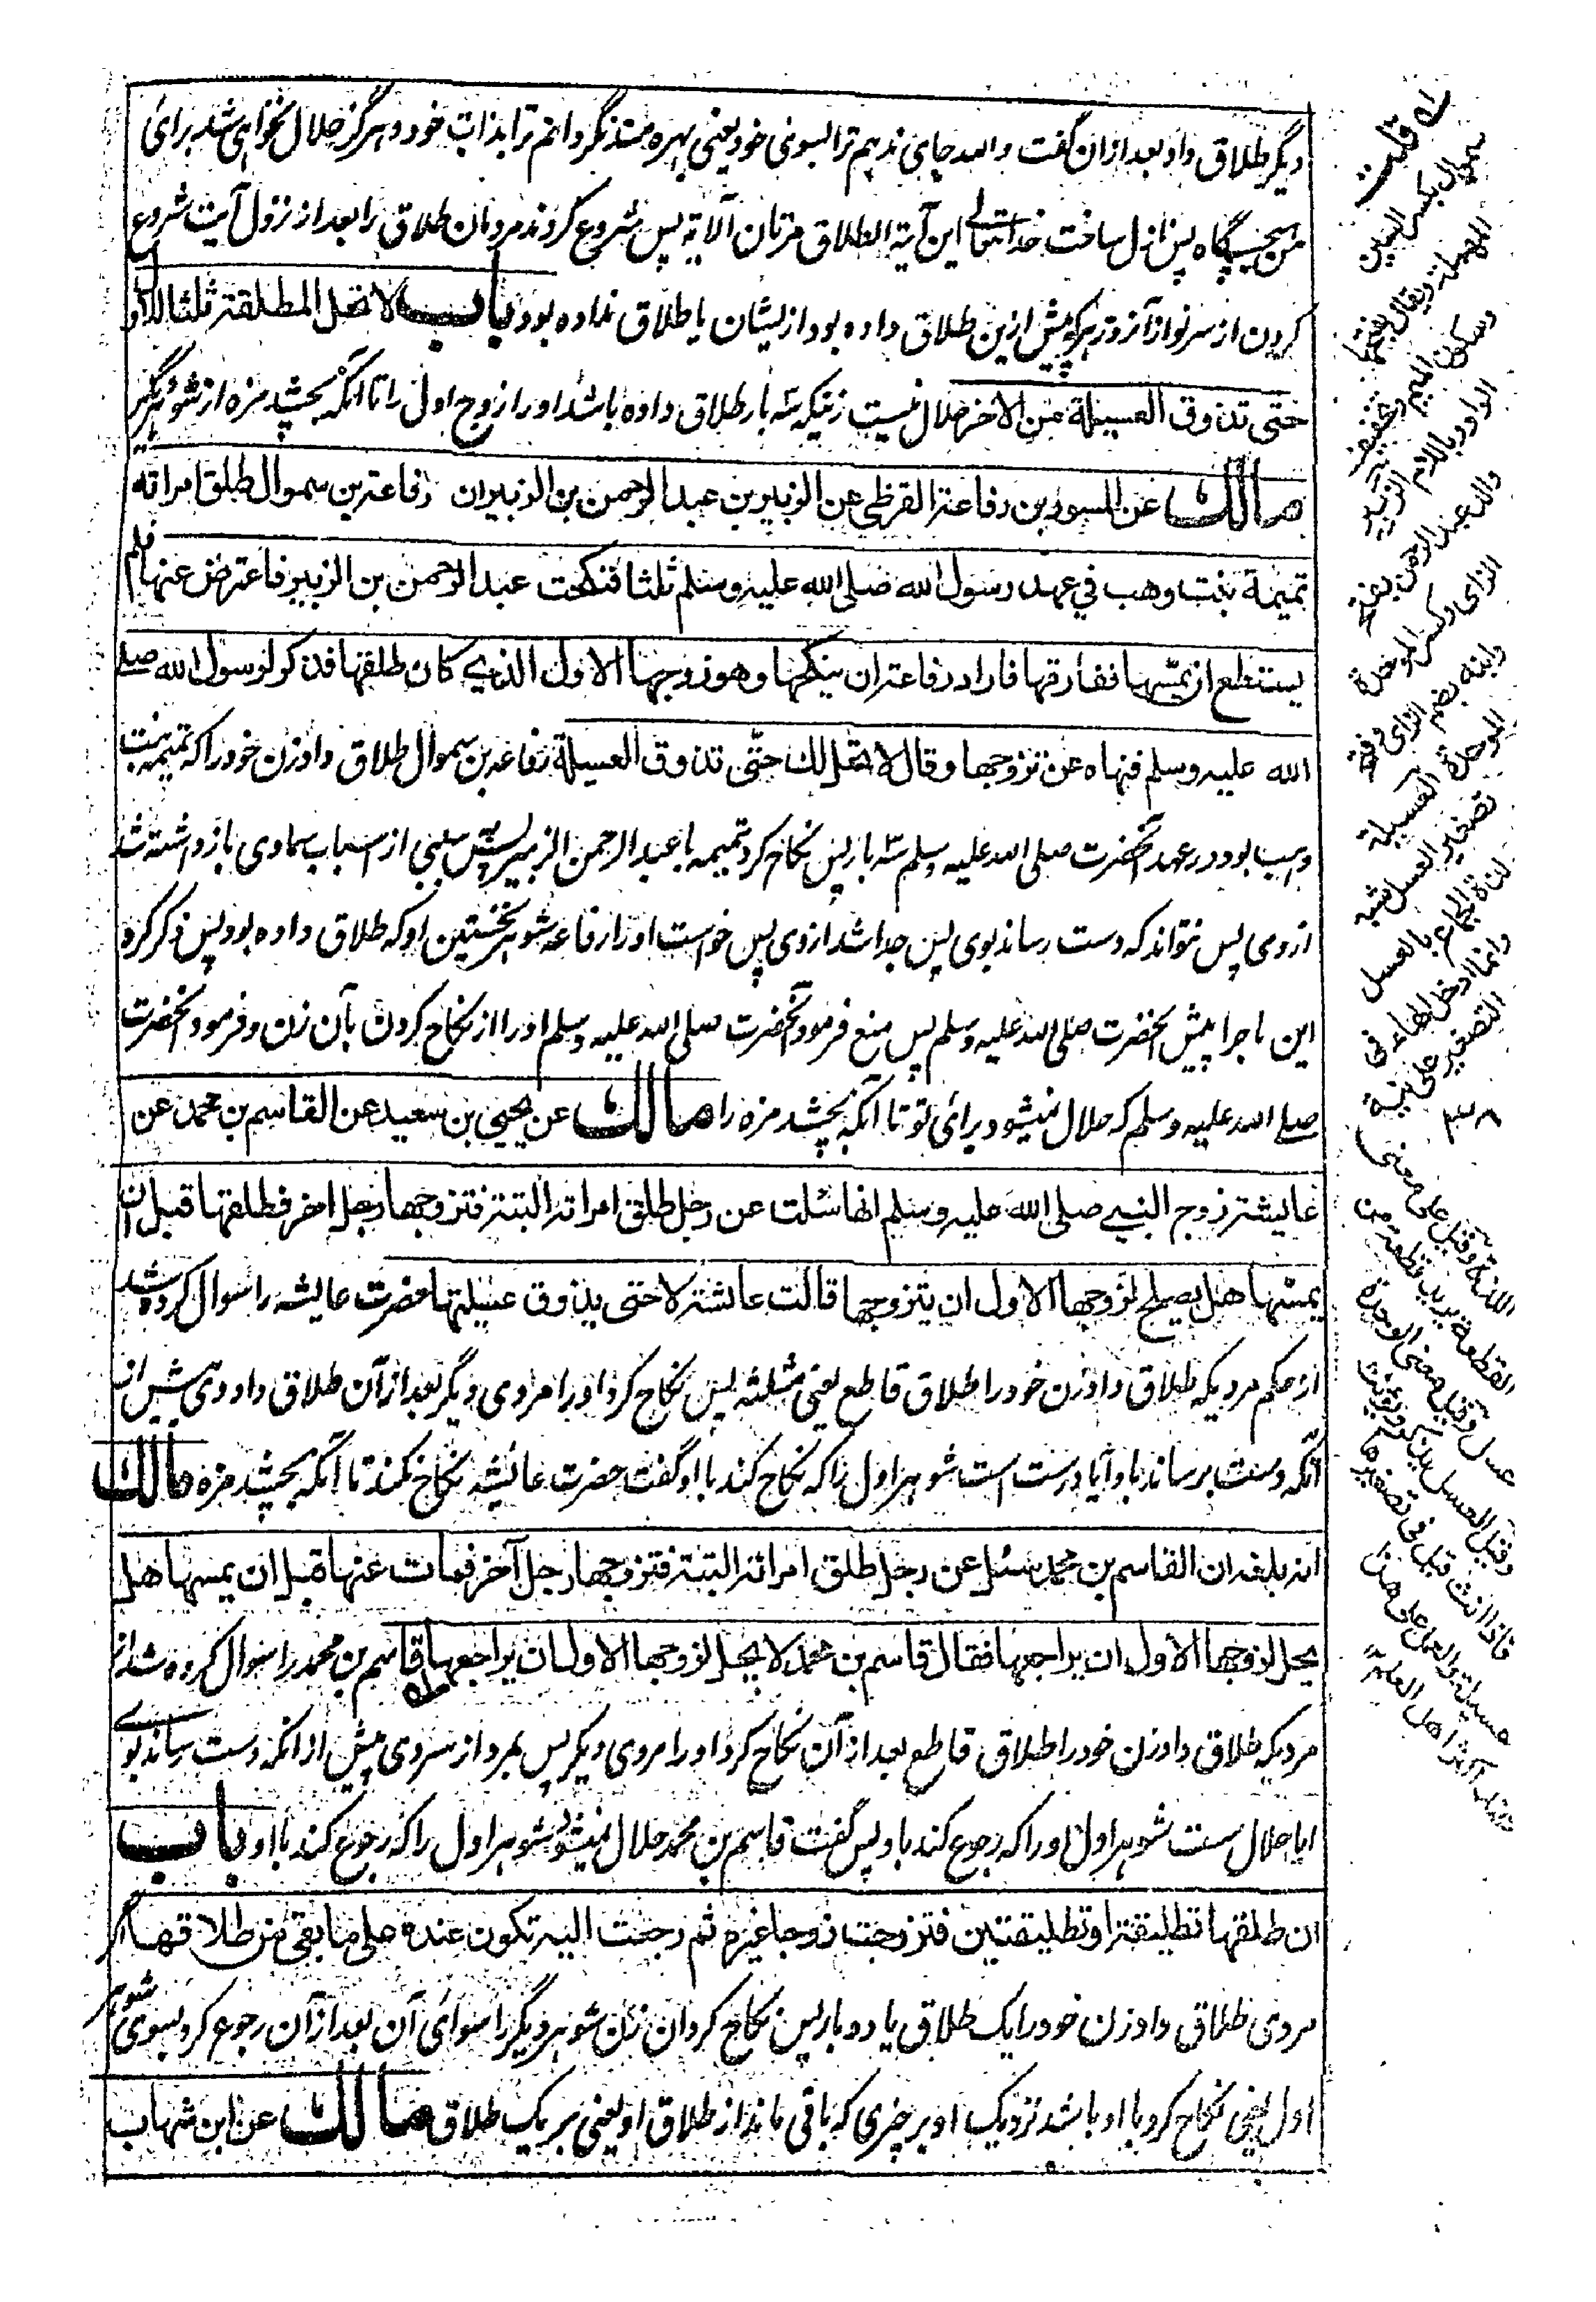 دیگر طلاق داد بعد ازان گفت والله جای ندہم ترا بسوی خود یعنی بہرہ مند نگردانم ترا بذات خود و ہرگز حلال نخواہی شد برای
من ہیچگاہ پس نازل ساخت خدایتعالی این آیتہ الطلاق مرتان الآیة پس شروع کردند مردمان طلاق را بعد از نزول آیت شروع
کردن از سر نو از آنروز ہر کہ پیش ازین طلاق دادہ بود از یشان یا طلاق ندادہ بود باب لا تحل المطلقة ثلثا للاول
حتی تذوق العسیلة من الاخر حلال نیست زنیکہ سہ بار طلاق دادہ باشد اورا زوج اول را تا آنکہ بچشد مزہ از شوہر دیگر
مالك عن المسور بن رفاعة القرظی عن الزبیر بن عبد الرحمن بن الزبیر ان رفاعة بن سموال طلق امراته
تمیمة بنت وهب فی عهد رسول الله صلی الله علیہ وسلم ثلثا فنکحت عبد الرحمن بن الزبیر فاعترض عنها فلم
یستطع ان یمسها ففارقها فاراد رفاعة ان ینکحها وهو زوجها الاول الذی کان طلقها فذکر لرسول الله صلی
الله علیہ وسلم فنهاه عن تزوجها وقال لا تحل لك حتی تذوق العسیلة رفاعہ بن سموال طلاق داد زن خود را کہ تمیمہ بنت
وہب بود در عہد آنحضرت صلی الله علیہ وسلم سہ بار پس نکاح کرد تمیمہ با عبد الرحمن الزبیر پس بسببی از اسباب سماوی باز داشتہ شد
ازوی پس نتواند کہ دست رساند بوی پس جدا شد ازوی پس خواست اورا رفاعہ شوہر نخستین او کہ طلاق دادہ بود پس ذکر کرد
این ماجرا پیش آنحضرت صلی الله علیہ وسلم پس منع فرمود آنحضرت صلی الله علیہ وسلم اورا از نکاح کردن بآن زن و فرمود آنحضرت
صلے الله علیہ وسلم کہ حلال نمیشود برای تو تا آنکہ بچشد مزہ را مالك عن یحیی بن سعید عن القاسم بن محمد عن
عایشة زوج النبی صلی الله علیہ وسلم انها سئلت عن رجل طلق امراته البتة فتزوجها رجل اخر فطلقها قبل ان
یمسها هل یصلح لزوجها الاول ان یتزوجها قالت عائشة لا حتی یذوق عسیلتها حضرت عایشہ را سوال کردہ شد
از حکم مردیکہ طلاق داد زن خود را طلاق قاطع یعنی مثلثہ پس نکاح کرد اورا مردی دیگر بعد ازان طلاق داد وی پیش از
آنکہ دست برساند باو آیا درست است شوہر اول را کہ نکاح کند با او گفت حضرت عائشہ نکاح نکند تا آنکہ بچشد مزہ مالك
انه بلغه ان القاسم بن محمد سئل عن رجل طلق امراته البتة فتزوجها رجل آخر فمات عنها قبل ان یمسها هل
یحل لزوجها الاول ان یراجعها فقال قاسم بن محمد لا یحل لزوجها الاول ان یراجعها قاسم بن محمد را سوال کردہ شد از
مردیکہ طلاق داد زن خود را طلاق قاطع بعد ازان نکاح کرد اورا مردی دیگر پس بمرد از سروی پیش از انکہ دست رساند بوی
ایا حلال ست شوہر اول اورا کہ رجوع کند باو پس گفت قاسم بن محمد حلال نمیشود شوہر اول را کہ رجوع کند با او باب
ان طلقها تطلیقة او تطلیقتین فتزوجت زوجا غیره ثم رجعت الیه تکون عنده علی ما بقی من طلاقها اگر
مردی طلاق داد زن خود را یک طلاق یا دو بار پس نکاح کرد آن زن شوہر دیگر را سوای آن بعد ازان رجوع کرد بسوی شوہر
اول یعنی نکاح کرد با او باشد نزدیک او بر چیزی کہ باقی ماند از طلاق او یعنی بر یک طلاق مالك عن ابن شهاب
قلت
سموال بکسر السین
المهملة ویقال بفتحها
وسکون المیم وتخفیف
الواو وباللام الزبیر
والد عبد الرحمن بفتح
الزای وکسر الموحدة
وابنه بضم الزای وفتح
الموحدة العسیلة
تصغیر العسل شبه
لذة الجماع بالعسل
وانما ادخل الهاء فی
التصغیر علی نیة
اللذة وقیل علی معنی
القطعة یرید قطعة من
عسل وقیل معنی الوحدة
وقیل العسل یذکر ویؤنث
فاذا انث قیل فی تصغیرها
عسیلة والعمل علی هذا
عند اکثر اهل العلم